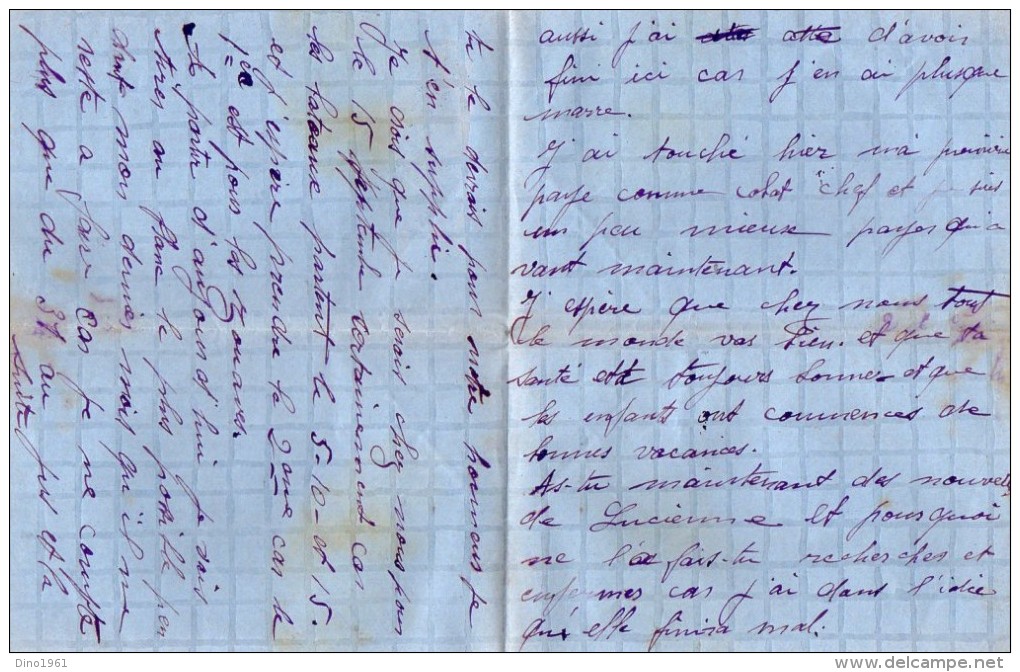 aussi j'ai atte d'avoir
fini ici car j'en ai plusque
marre.
J'ai touché hier ma première
paye comme cabot "chef et je suis
un peu mieux payer qu'a
vant maintenant.
J'espère que chez nous tout
le monde vas bien. et que ta
santé est toujours bonne et que
les enfants ont commencés de
bonnes vacances.
As-tu maintenant des nouvelles
de Lucienne et pourquoi
ne l'a fais-tu rechercher et
enfermer car j'ai dans l'idée
qu'elle finira mal.
tu le devrais pour notre honneur je
t'en supplie.
Je crois que je serais chez nous pour
le 15 septembre certainement car
les bateaux partent le 5-10-et 15.
et j'espère prendre le 2ème car le
1er est pour les Zouaves.
A partir d'aujourd'hui je vais
tirer au flanc le plus possible pen
dant mon dernier mois qui il me
reste a faire car je ne compte
plus que du 37 au jus et la
suite
Dino1961
Delcampe.net